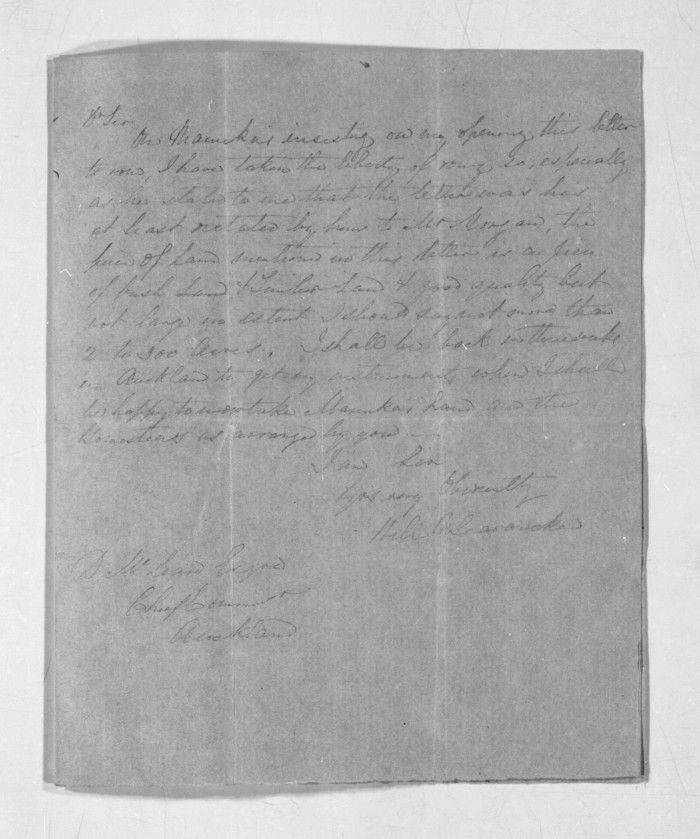 Dr Sir
On Manuka's insisting on my opening this letter
to me I have taken the liberty of doing so, especially
as he stated to me that the letter was his
at least dictated by him to Mr Morgan, the
piece of land mentioned in this letter is a piece
of bush land & Timber land & good quality but
not large in extent I should say not more than
2 to 300 Acres. I shall be back in three weeks
in Auckland to get my instruments when I shall
be happy to undertake Manuka's land and the
Homesteads as arranged by you
I am Sir
Yrs very Obediently
Will
D McLean Esqre
Chief Commr
Auckland